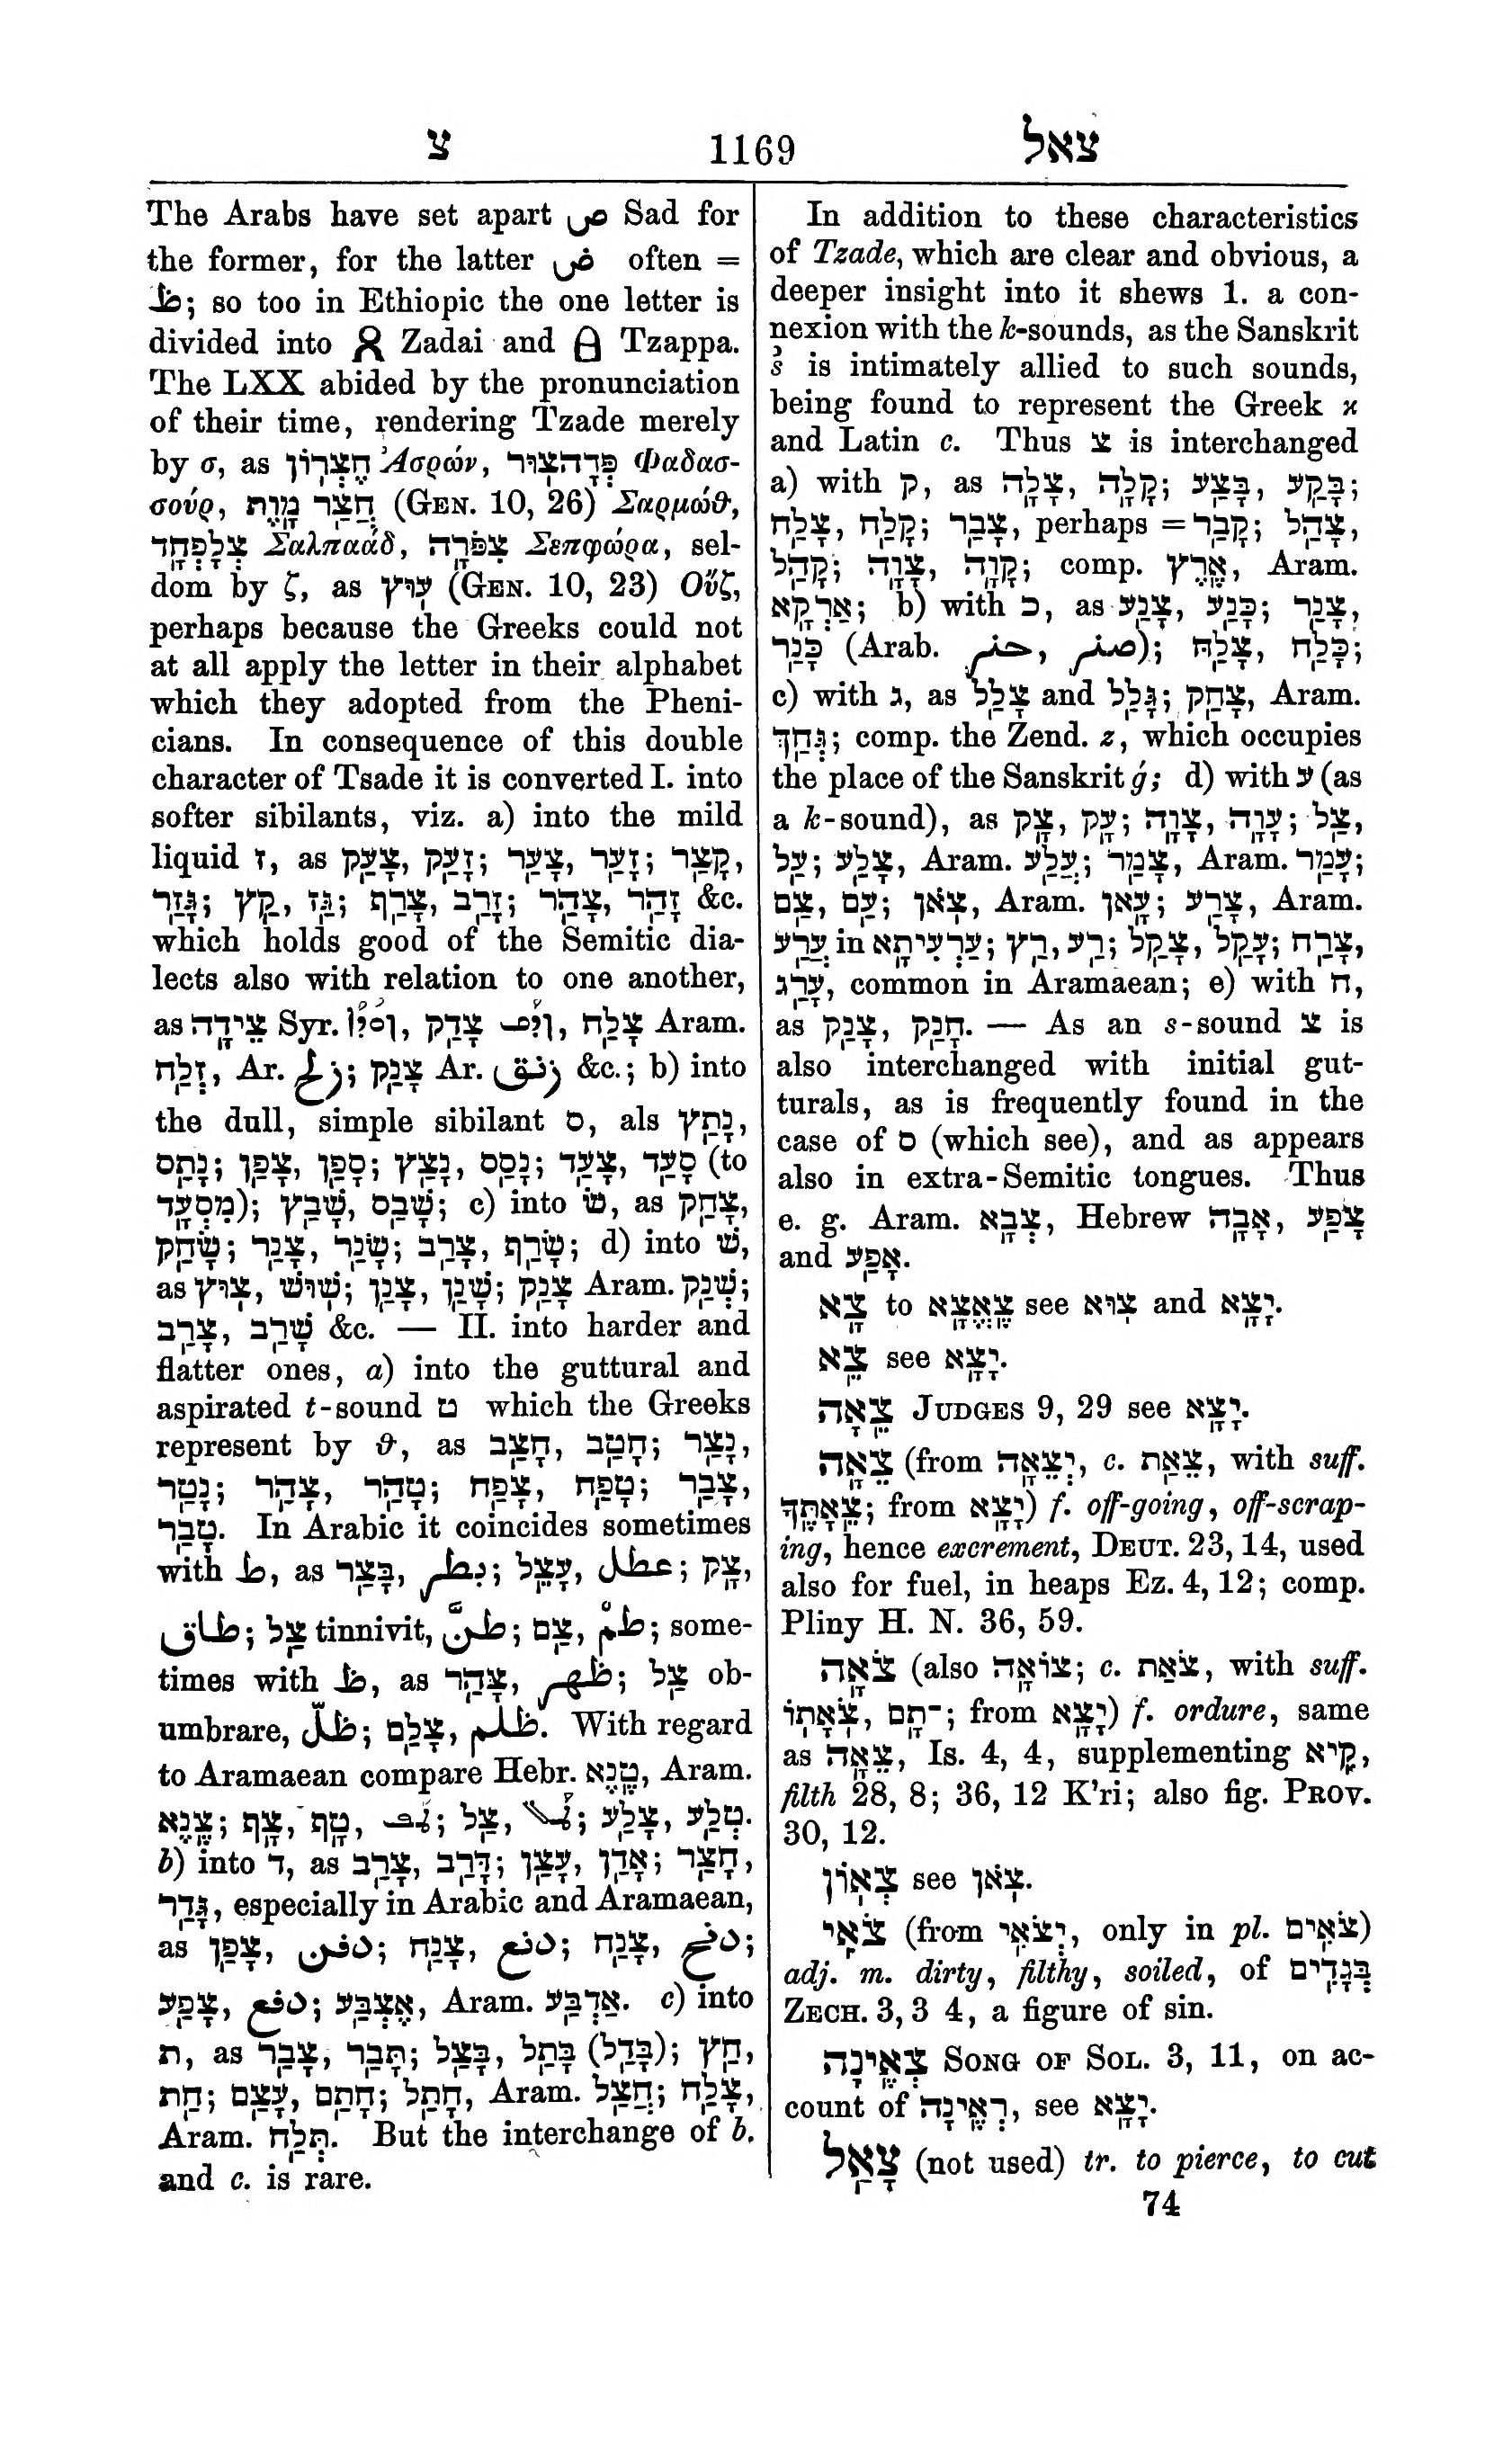 צ 1169 צאל
The Arabs have set apart ص Sad for
the former, for the latter ض often =
ظ; so too in Ethiopic the one letter is
divided into ጸ Zadai and ፀ Tzappa.
The LXX abided by the pronunciation
of their time, rendering Tzade merely
by σ, as חֶצְרוֹן Ἀσρών, פְּדָהצוּר Φαδασ-
σούρ, חֲצַר מָוֶת (GEN. 10, 26) Σαρμώθ,
צְלָפְחָד Σαλπαάδ, צִפֹּרָה Σεπφώρα, sel-
dom by ζ, as עוּץ (GEN. 10, 23) Οὔζ,
perhaps because the Greeks could not
at all apply the letter in their alphabet
which they adopted from the Pheni-
cians. In consequence of this double
character of Tsade it is converted I. into
softer sibilants, viz. a) into the mild
liquid ז, as צָעַק, זָעַק; צָעַר, זָעַר; קָצַר,
גָּזַר; קֵץ, גַּז; צָרַף, זָרַב; צָהַר, זָהַר &c.
which holds good of the Semitic dia-
lects also with relation to one another,
as צֵידָה Syr. צָדַק, צָלַח Aram.
זְלַח, Ar. زلخ; צָנַק Ar. زنق &c.; b) into
the dull, simple sibilant ס, als נָתַץ,
נָתַס; צָפַן, סָפַן; נָצַץ, נָסַס; צָעַד, סָעַד (to
מִסְעָד); שָׁבַץ, שָׁבַס; c) into שׂ, as צָחַק,
שָׂחַק; צָנַר, שָׂנַר; צָרַב, שָׂרַף; d) into שׁ,
as צוּץ, שׁוּשׁ; צָנַן, שָׁנַן; צָנַק Aram. שְׁנַק;
צָרַב, שָׁרַב &c. — II. into harder and
flatter ones, a) into the guttural and
aspirated t-sound ט which the Greeks
represent by ϑ, as חָצַב, חָטַב; נָצַר,
נָטַר; צָהַר, טָהַר; צָפַח, טָפַח; צָבַר,
טָבַר. In Arabic it coincides sometimes
with ط, as בָּצַר, نطر; עָצֵל, عطل; צָק,
طاق; צַל tinnivit, طنّ; צַם, طمّ; some-
times with ظ, as צָהַר, ظهر; צַל ob-
umbrare, ظلّ; צָלַם, ظلم. With regard
to Aramaean compare Hebr. טֶנֶא, Aram.
צֶנֶא; צָף, טָף, צַל, צָלַע, טְלַע.
b) into ד, as צָרַב, דָּרַב; עָצַן, אָדַן; חָצַר,
גָּדַר, especially in Arabic and Aramaean,
as צָפַן, دفن; צָנַח, دنع; צָנַח, دنخ;
צָפַע, دفع; אֶצְבַּע, Aram. אַדְבַּע. c) into
ת, as צָבַר, תָּבַר; בָּצַל, בָּתַל (בָּדַל); חַץ,
חַת; עָצַם, חָתַם; חָתַל, Aram. חֲצַל; צָלַח,
Aram. תְּלַח. But the interchange of b.
and c. is rare.
In addition to these characteristics
of Tzade, which are clear and obvious, a
deeper insight into it shews 1. a con-
nexion with the k-sounds, as the Sanskrit
s̓ is intimately allied to such sounds,
being found to represent the Greek κ
and Latin c. Thus צ is interchanged
a) with ק, as צָלָה, קָלָה; בָּצַע, בָּקַע;
צָלַח, קָלַח; צָבַר, perhaps = קָבַר; צָהַל,
קָהַל; צָוָה, קָוָה; comp. אֶרֶץ, Aram.
אַרְקָא; b) with כ, as צָנַע, כָּנַע; צָנַר,
כָּנַר (Arab. حنر, صنر); צָלַח, כָּלַח;
c) with ג, as צָלַל and גָּלַל; צָחַק, Aram.
גְּחַךְ; comp. the Zend. z, which occupies
the place of the Sanskrit ǵ; d) with ע (as
a k-sound), as צָק, עָק; צָוָה, עָוָה; צַל,
עַל; צָלַע, Aram. עֲלַע; צָמַר, Aram. עֲמַר;
צַם, עַם; צֹאן, Aram. עָאן; צָרַע, Aram.
עֲרַע in עַרְעִיתָא; רַץ, רַע; צָקַל, עָקַל; צָרַח,
עָרַג, common in Aramaean; e) with ח,
as צָנַק, חָנַק. — As an s-sound צ is
also interchanged with initial gut-
turals, as is frequently found in the
case of ס (which see), and as appears
also in extra-Semitic tongues. Thus
e. g. Aram. צְבָא, Hebrew אָבָה, צֶפַע
and אָפַע.
צָא to צֶאֱצָא see צוֹא and יָצָא.
צֵא see יָצָא.
צֵאָה JUDGES 9, 29 see יָצָא.
צֵאָה (from יְצֵאָה, c. צֵאַת, with suff.
צֵאָתֶךָ; from יָצָא) f. off-going, off-scrap-
ing, hence excrement, DEUT. 23, 14, used
also for fuel, in heaps Ez. 4, 12; comp.
Pliny H. N. 36, 59.
צֹאָה (also צוֹאָה; c. צֹאַת, with suff.
צֹאָתוֹ, ־תָם; from יָצָא) f. ordure, same
as צֵאָה, Is. 4, 4, supplementing קִיא,
filth 28, 8; 36, 12 K'ri; also fig. PROV.
30, 12.
צְאוֹן see צֹאן.
צֹאִי (from יְצֹאִי, only in pl. צֹאִים)
adj. m. dirty, filthy, soiled, of בְּגָדִים
ZECH. 3, 3 4, a figure of sin.
צְאֶינָה SONG OF SOL. 3, 11, on ac-
count of רְאֶינָה, see יָצָא.
צָאַל (not used) tr. to pierce, to cut
74